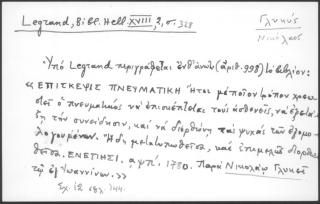 Legrand, Bibl. Hell. XVIII, 2, σ. 328
Γλυκύς
Νικόλαος
Ὑπὸ Legrand περιγράφεται ἐνθ' ἀνωτ. (ἀριθ. 998) τὸ βιβλίον:
« ΕΠΙΣΚΕΨΙΣ ΠΝΕΥΜΑΤΙΚΗ Ἤτοι μὲ ποῖον τρόπον χρεω-
στεῖ ὁ πνευματικὸς νὰ ἐπισκέπτεται τοὺς ἀσθενεῖς, νὰ
δῃ τὴν συνείδησιν, καὶ νὰ διορθώνῃ τὰς ψυχὰς τῶν ἐξομο-
λογουμένων. Ἤδη μετατυπωθεῖσα, καὶ ἐπιμελῶς διορθω-
θεῖσα. ΕΝΕΤΙΗΣΙ, αψπ'. 1780. Παρὰ Νικολάῳ Γλυκεῖ
τῷ ἐξ Ἰωαννίνων. »
Σχ. 12 σελ. 144.